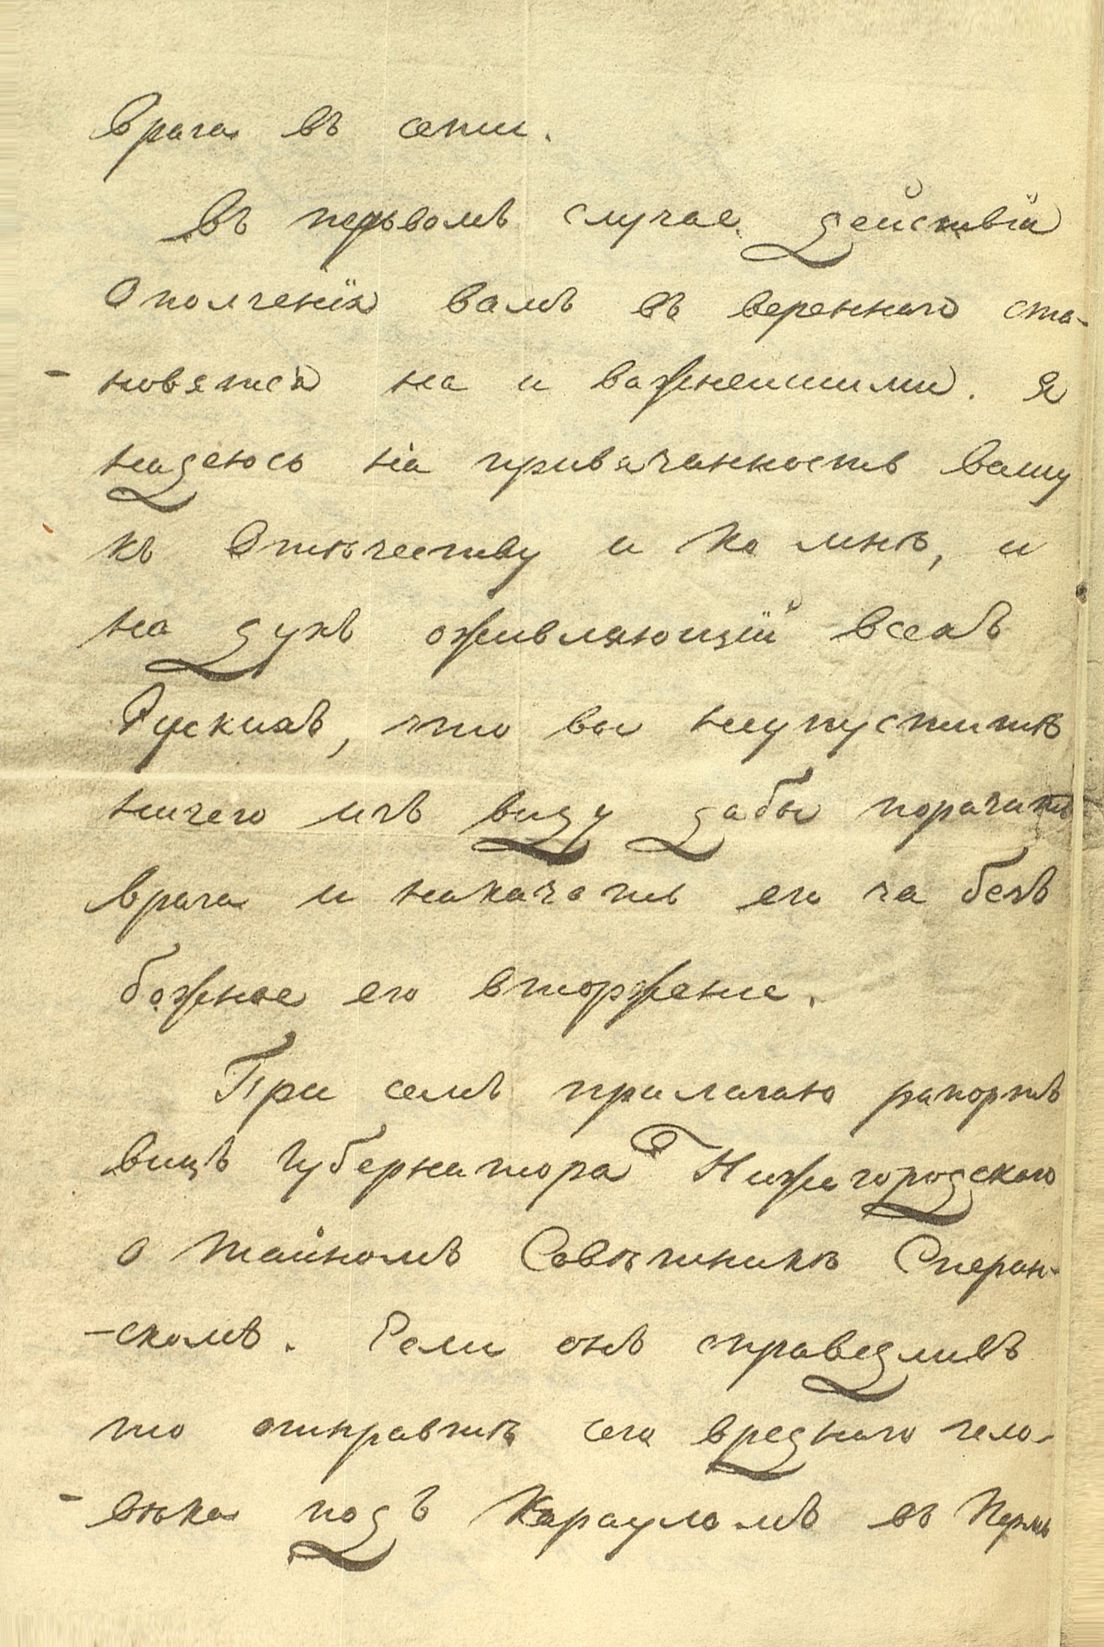 врага въ сети.
Въ перьвомъ случае действiи
Ополченiя вамъ въ веренного ста-
- новятся на и важнеишими. Я
надеюсь на привязанность вашу
къ Отѣчеству и ко мнѣ, и
на духъ оживляющiй всехъ
Рускихъ, что вы неупуститѣ
ничего изъ виду дабы поразить
врага и наказать его за безъ
божное его вторжение.
При семъ прилагаю рапортъ
вицъ Губернатора Нижегородскаго
о Тайномъ Совѣтникѣ Сперан-
-скомъ. Если онъ справедливъ
то отправить сего вреднаго чело-
- вѣка подъ Карауломъ въ Пермь